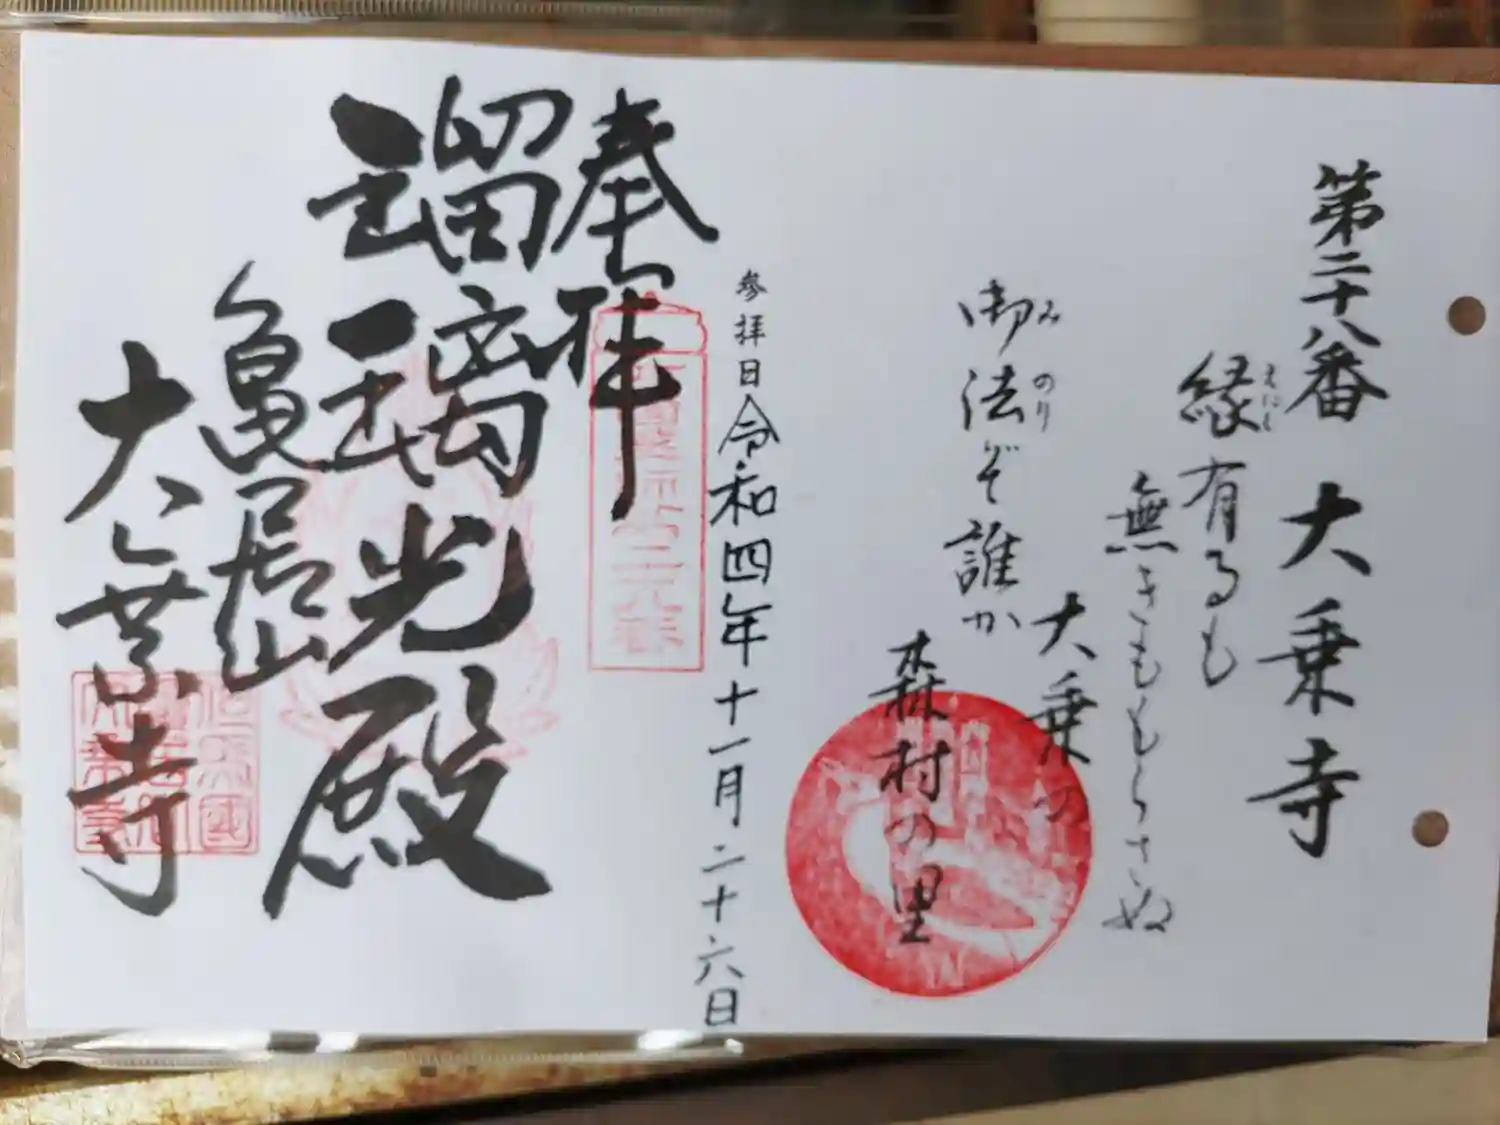 第二十八番 大乗寺
縁有るも
えにし
無きももらさぬ
大乗の
御法ぞ誰か
みのり
森村の里
参拝日 令和四年十一月二十六日
奉拝
瑠璃光殿
亀居山
大乗寺